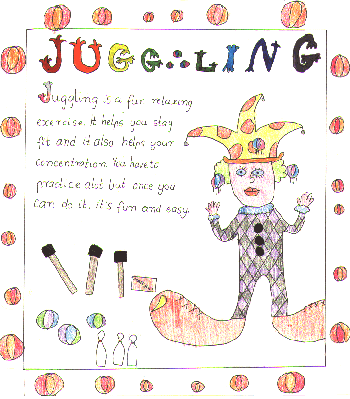 JUGGLING
Juggling is a fun relaxing
exercise. It helps you stay
fit and it also helps your
concentration. You have to
practice alot but once you
can do it, it's fun and easy.